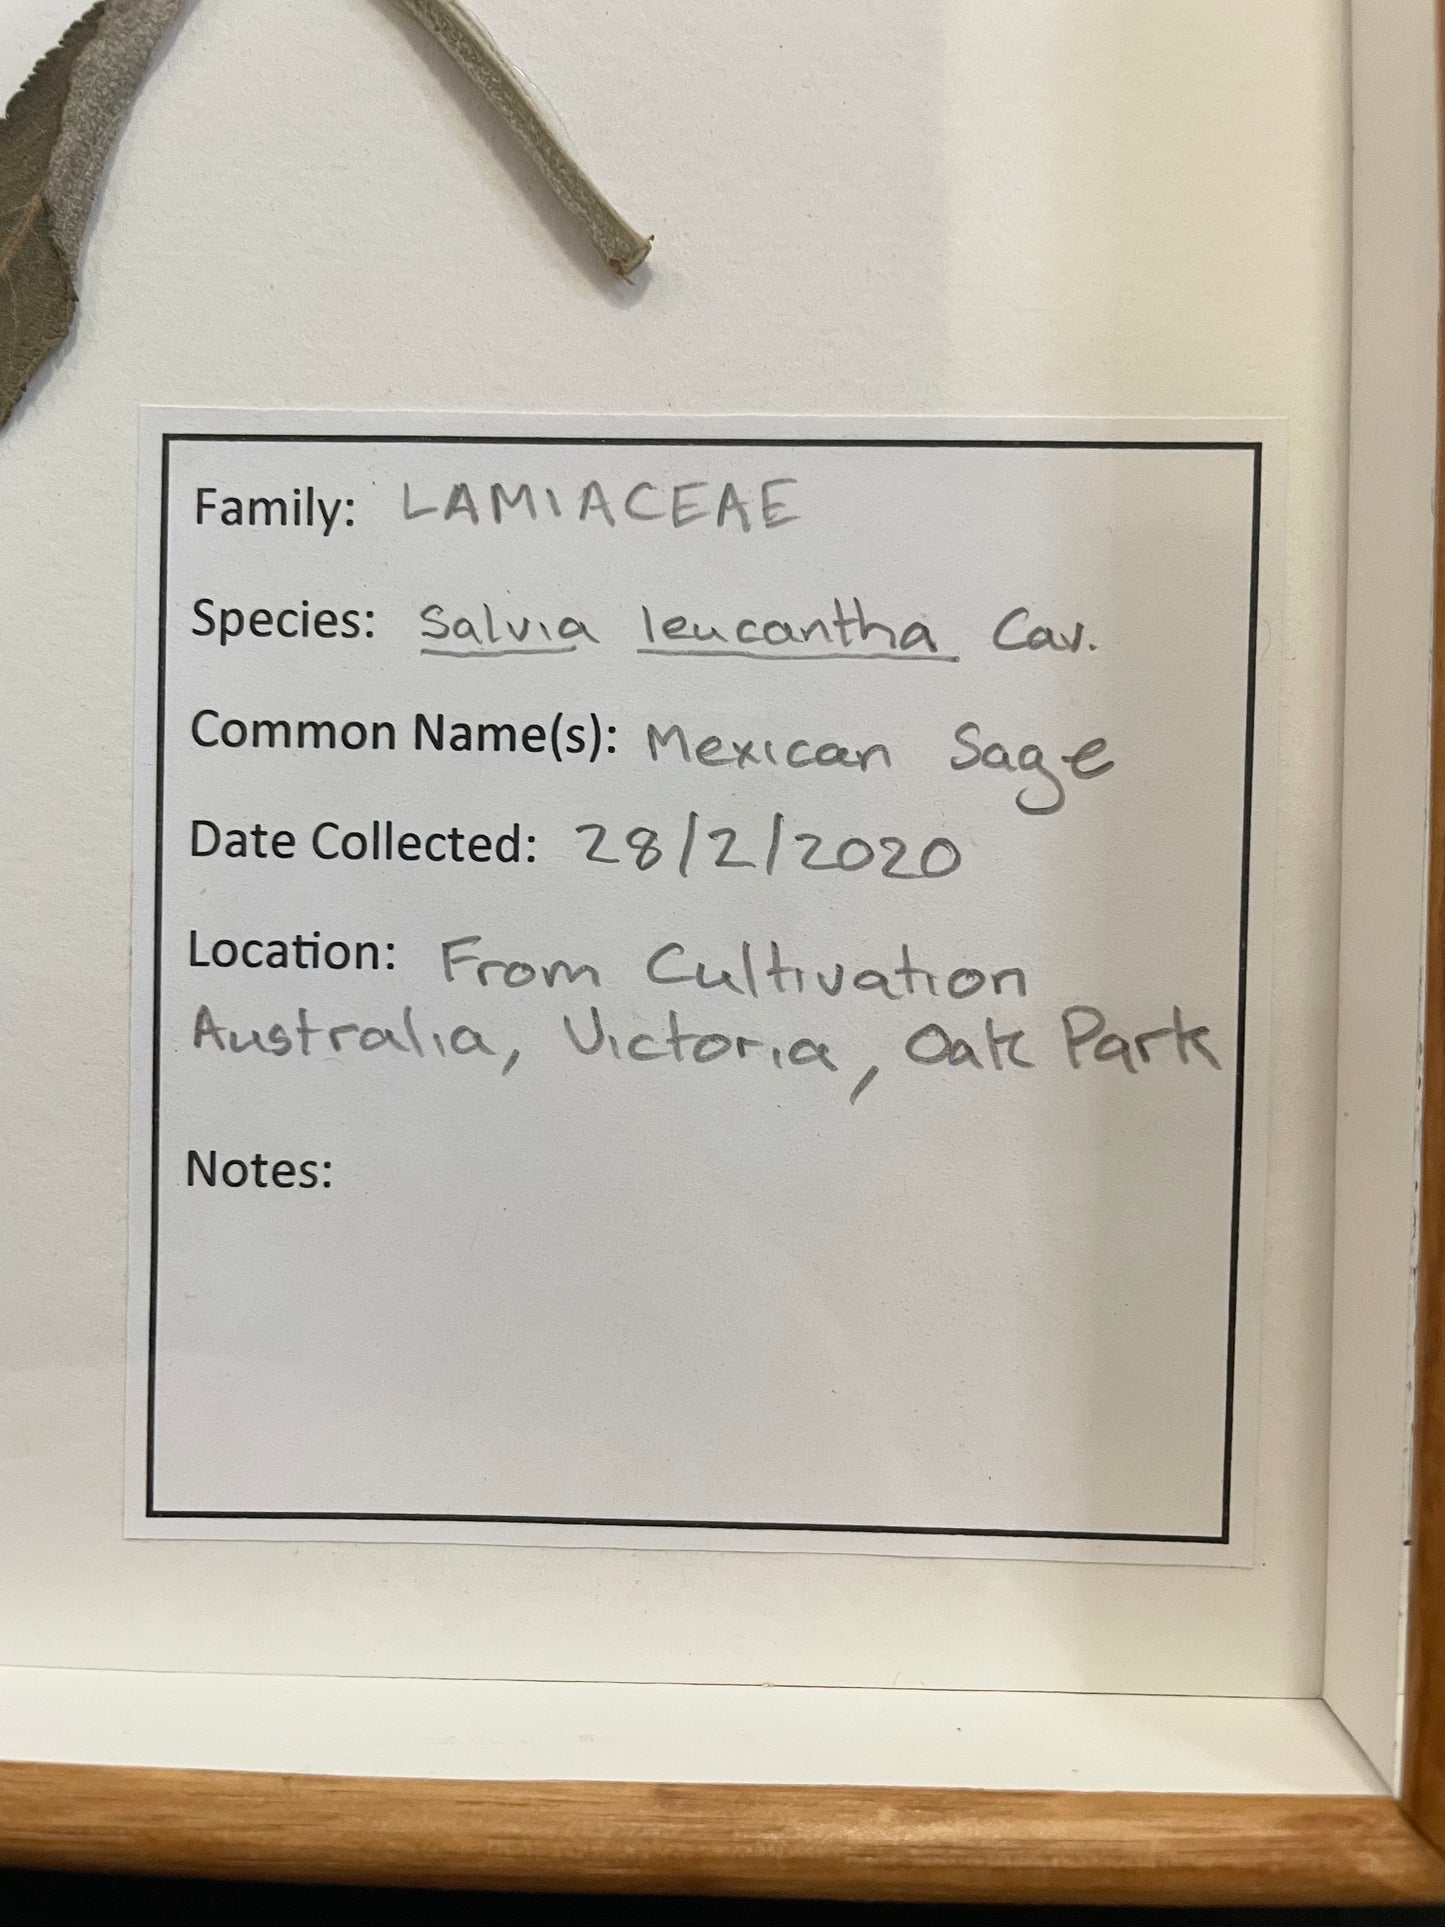 Family: LAMIACEAE
Species: Salvia leucantha Cav.
Common Name(s): Mexican Sage
Date Collected: 28/2/2020
Location: From Cultivation
Australia, Victoria, Oak Park
Notes: